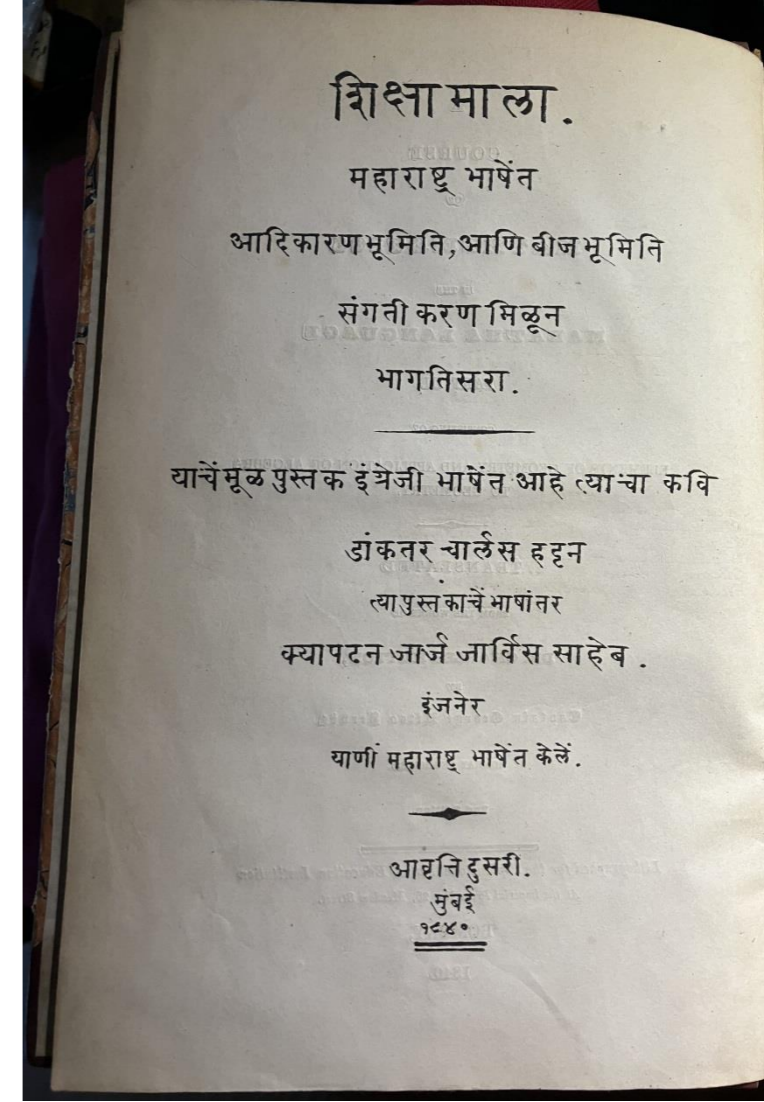 शिक्षामाला.
महाराष्ट्र भाषेंत
आदिकारणभूमिति, आणि बीजभूमिति
संगतीकरण मिळून
भागतिसरा.
याचेंमूळ पुस्तक इंग्रेजी भाषेंत आहे त्याचा कवि
डांकतर चार्लस हट्टन
त्यापुस्तकाचें भाषांतर
क्यापटन जार्ज जार्विस साहेब.
इंजनेर
याणीं महाराष्ट्र भाषेंत केलें.
आवृत्ति दुसरी.
मुंबई
१८४०